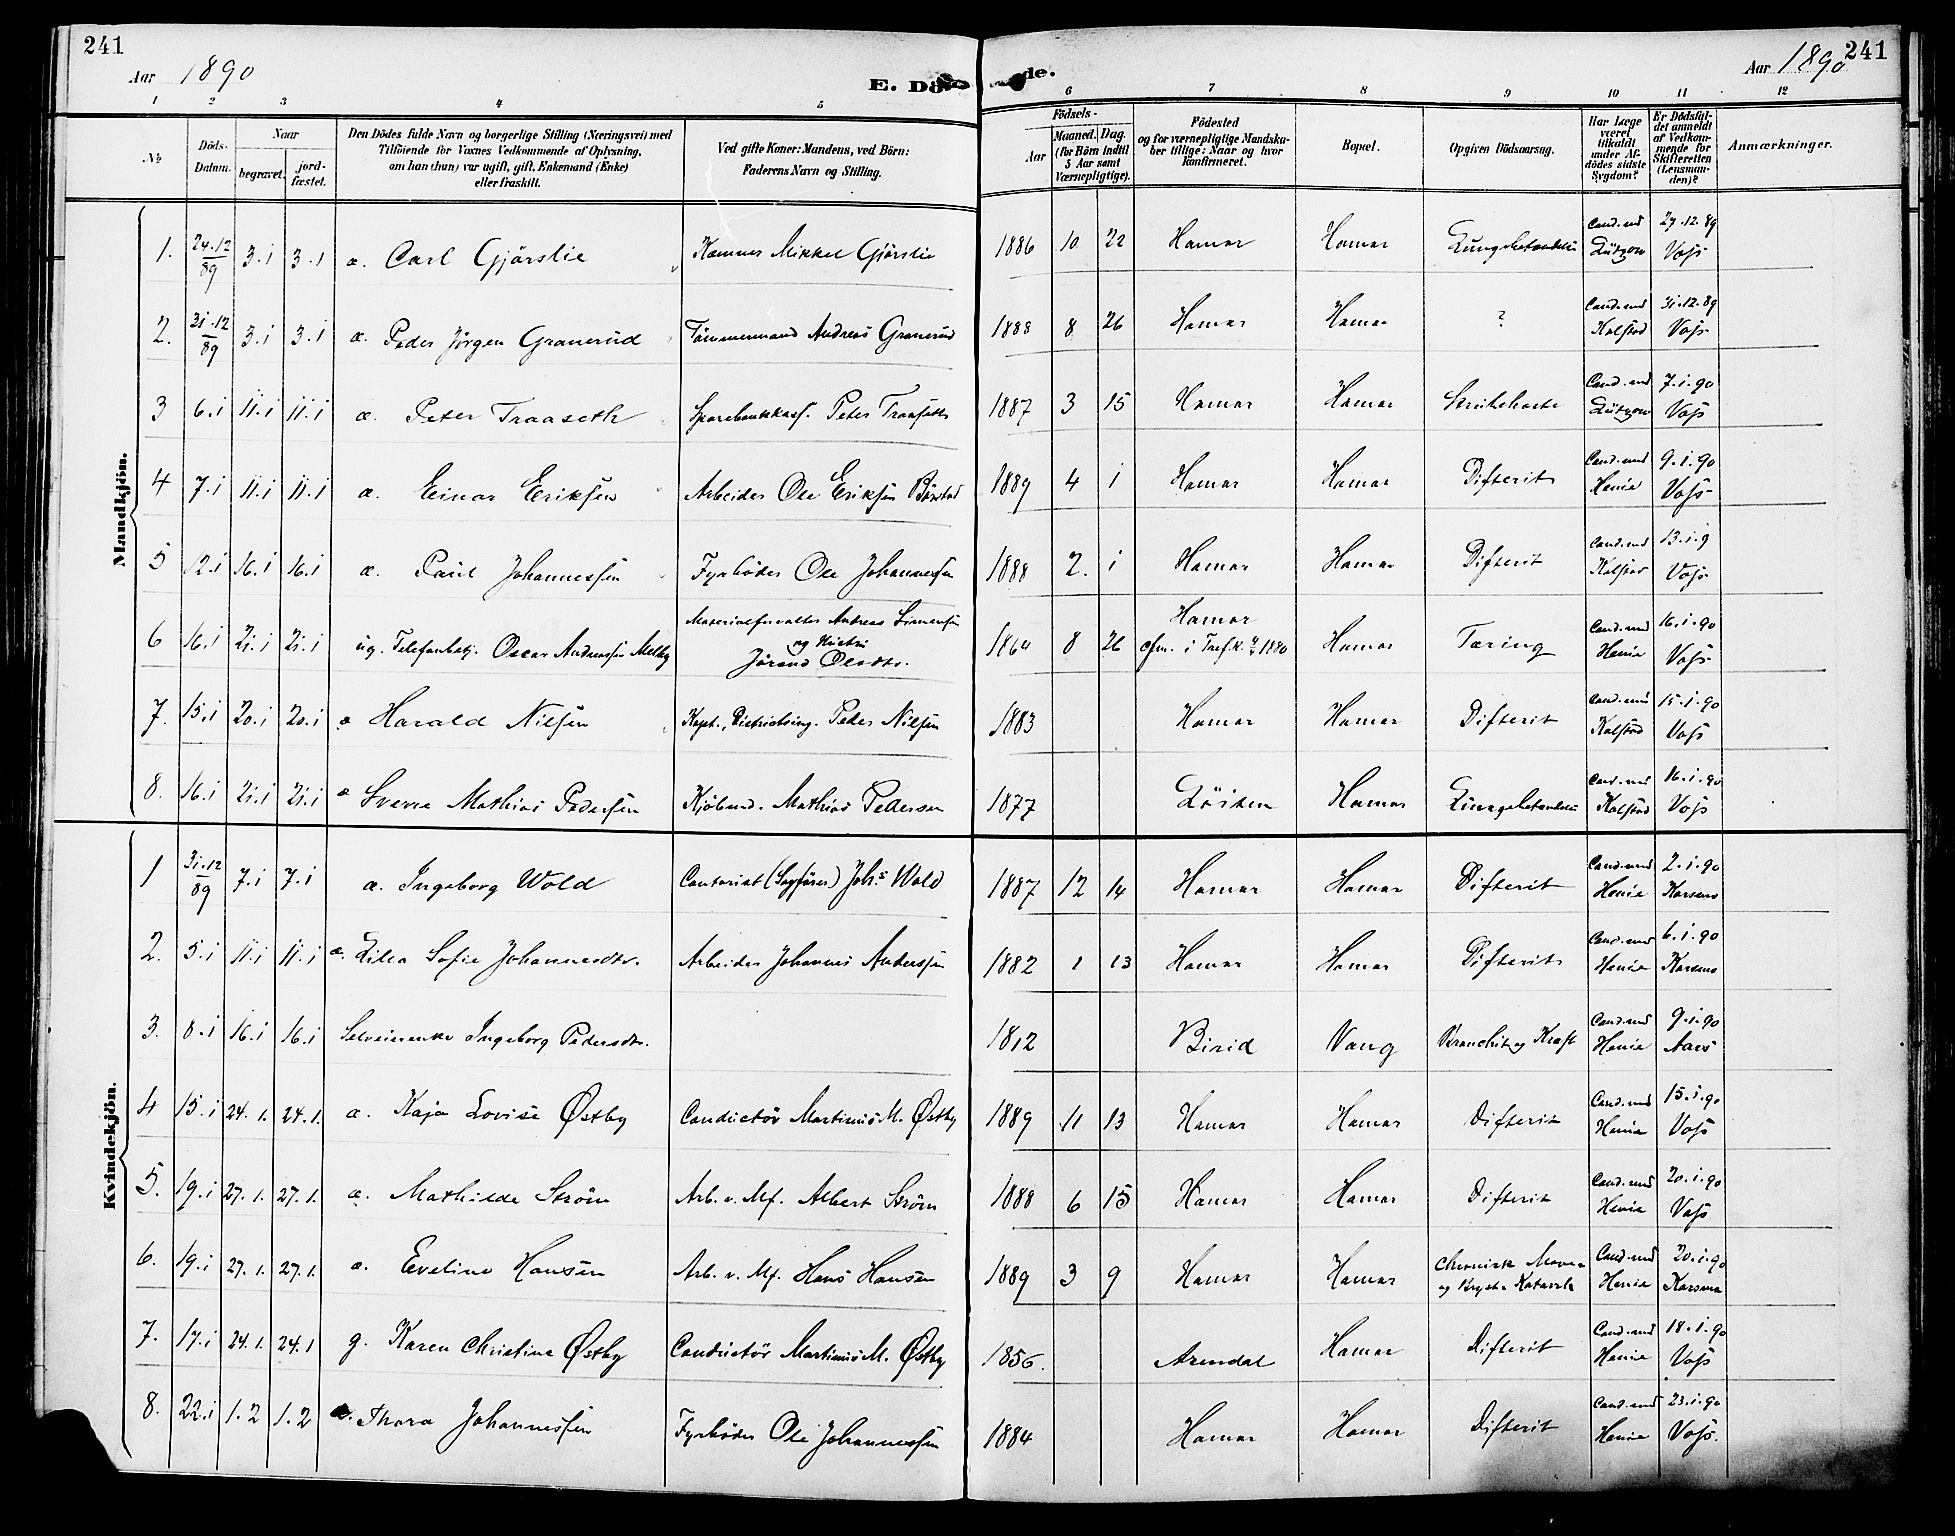 241
Aar 1890
E. Dö
de.
Aar 1890
241
1 2 3 4 5 6 7 8 9 10 11 12
No
Döds-Datum.
Naar
begravet.
jord-fæstet.
Den Dödes fulde Navn og borgerlige Stilling (Næringsvei) med
Tilföiende for Voxnes Vedkommende af Oplysning,
om han (hun) var ugift, gift, Enkemand (Enke)
eller fraskilt.
Ved gifte Koner: Mandens, ved Börn:
Faderens Navn og Stilling.
Födsels-
Aar
Maaned. Dag.
(for Börn indtil
5 Aar samt
Værnepligtige).
Födested
og for værnepligtige Mandska-
ber tillige: Naar og hvor
konfirmeret.
Bopæl.
Opgiven Dödsaarsag.
Har Læge
været
tilkaldt
under Af-
dödes sidste
Sygdom?
Er Dödsfal-
det anmeldt
af Vedkom-
mende for
Skifteretten
(Lensman-
den)?
Anmærkninger.
Mandkjön.
1. 24.12/89 3.1 3.1 a. Carl Gjörslie Kæmner Mikkel Gjörslie 1886 10 22 Hamar Hamar Lungebetændelse Cand.med Lützow 27.12.89 Vojs
2. 31.12/89 3.1 3.1 a. Peder Jörgen Granerud Tömmermand Andreas Granerud 1888 8 26 Hamar Hamar ? Cand.med Kolstad 31.12.89 Vojs
3 6.1 11.1 11.1 a. Peter Traaseth Sparebankkass. Peter Traaseth 1887 3 15 Hamar Hamar Strubehoste Cand.med Lützow 7.1.90 Vojs
4 7.1 11.1 11.1 a. Einar Eriksen Arbeider Ole Eriksen 1889 4 1 Hamar Hamar Difterit Cand.med Henie 9.1.90 Vojs
5 12.1 16.1 16.1 a. Paul Johannessen Fyrböder Ole Johannessen 1888 2. 1 Hamar Hamar Difterit Cand.med Kolstad 13.1.9 Vojs
6 16.1 21.1 21.1 ug. Telefonbetj. Oscar Andressen Melby Materialforvalter Andreas Simensen og Hustru Jörand Olesdtr. 1864 8 26 Hamar cfm. i 1880 Hamar Tæring Cand.med Henie 16.1.90 Vojs
7. 15.1 20.1 20.1 a Harald Nilsen Kapt., Peder Nilsen 1883 Hamar Hamar Difterit Cand.med Kolstad 15.1.90 Vojs
8. 16.1 21.1 21.1 a Sverre Mathias Pedersen Kjöbmd. Mathias Pedersen 1877 Löiten Hamar Lungebetændelse Cand.med Kolstad 16.1.90 Vojs
Kvindekjön.
1 31.12/89 7.1 7.1 a. Ingeborg Wold Contorist (Sagförer) Johs Wold 1887 12 14 Hamar Hamar Difterit Cand.med Henie 2.1.90 Karsens
2. 5.1 11.1 11.1 a. Lilla Sofie Johannesdtr. Arbeider Johannes Anderssen 1882 1 13 Hamar Hamar Difterit Cand.med Henie 6.1.90 Karsens
3. 8.1 16.1 16.1 Selveierenke Ingeborg Pedersdtr. 1812 Birid Vang og Kræft Cand.med Henie 9.1.90 Aars
4 15.1 24.1. 24.1. a. Kaja Lovise Østby Conductör Martinius M. Østby 1889 11 13 Hamar Hamar Difterit Cand.med Henie 15.1.90 Vojs
5. 19.1 27.1. 27.1. a. Mathilde Ström Arb. v. Mf. Albert Ström 1888 6 15 Hamar Hamar Difterit Cand.med Henie 20.1.90 Vojs
6. 19.1 27.1. 27.1. a. Eveline Hansen Arb. v. Mf. Hans Hansen 1889 3 9 Hamar Hamar chronisk Mave- og Bryst-Katarrh Cand.med Henie 20.1.90 Karsens
7. 17.1 24.1. 24.1 g. Karen Christine Østby Conductör Martinius M. Østby 1856. Arendal Hamar Difterit Cand.med Henie 18.1.90 Vojs
8. 22.1 1.2 1.2 a. Thora Johannessen Fyrböder Ole Johannessen 1884 Hamar Hamar Difterit Cand.med Henie 23.1.90 Vojs.